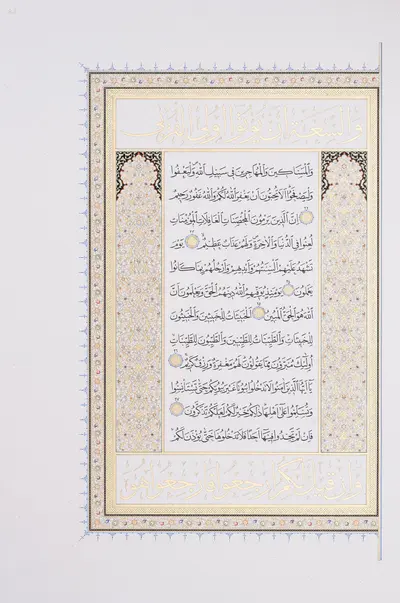 وَالسَّعَةِ أَنْ يُؤْتُوا أُولِي الْقُرْبَىٰ
وَالْمَسَاكِينَ وَالْمُهَاجِرِينَ فِي سَبِيلِ اللَّهِ وَلْيَعْفُوا
وَلْيَصْفَحُوا أَلَا تُحِبُّونَ أَنْ يَغْفِرَ اللَّهُ لَكُمْ وَاللَّهُ غَفُورٌ رَحِيمٌ
إِنَّ الَّذِينَ يَرْمُونَ الْمُحْصَنَاتِ الْغَافِلَاتِ الْمُؤْمِنَاتِ
لُعِنُوا فِي الدُّنْيَا وَالْآخِرَةِ وَلَهُمْ عَذَابٌ عَظِيمٌ يَوْمَ
تَشْهَدُ عَلَيْهِمْ أَلْسِنَتُهُمْ وَأَيْدِيهِمْ وَأَرْجُلُهُمْ بِمَا كَانُوا
يَعْمَلُونَ يَوْمَئِذٍ يُوَفِّيهِمُ اللَّهُ دِينَهُمُ الْحَقَّ وَيَعْلَمُونَ أَنَّ
اللَّهَ هُوَ الْحَقُّ الْمُبِينُ الْخَبِيثَاتُ لِلْخَبِيثِينَ وَالْخَبِيثُونَ
لِلْخَبِيثَاتِ وَالطَّيِّبَاتُ لِلطَّيِّبِينَ وَالطَّيِّبُونَ لِلطَّيِّبَاتِ
أُولَٰئِكَ مُبَرَّءُونَ مِمَّا يَقُولُونَ لَهُمْ مَغْفِرَةٌ وَرِزْقٌ كَرِيمٌ
يَا أَيُّهَا الَّذِينَ آمَنُوا لَا تَدْخُلُوا بُيُوتًا غَيْرَ بُيُوتِكُمْ حَتَّىٰ تَسْتَأْنِسُوا
وَتُسَلِّمُوا عَلَىٰ أَهْلِهَا ذَٰلِكُمْ خَيْرٌ لَكُمْ لَعَلَّكُمْ تَذَكَّرُونَ
فَإِنْ لَمْ تَجِدُوا فِيهَا أَحَدًا فَلَا تَدْخُلُوهَا حَتَّىٰ يُؤْذَنَ لَكُمْ
وَإِنْ قِيلَ لَكُمُ ارْجِعُوا فَارْجِعُوا هُوَ